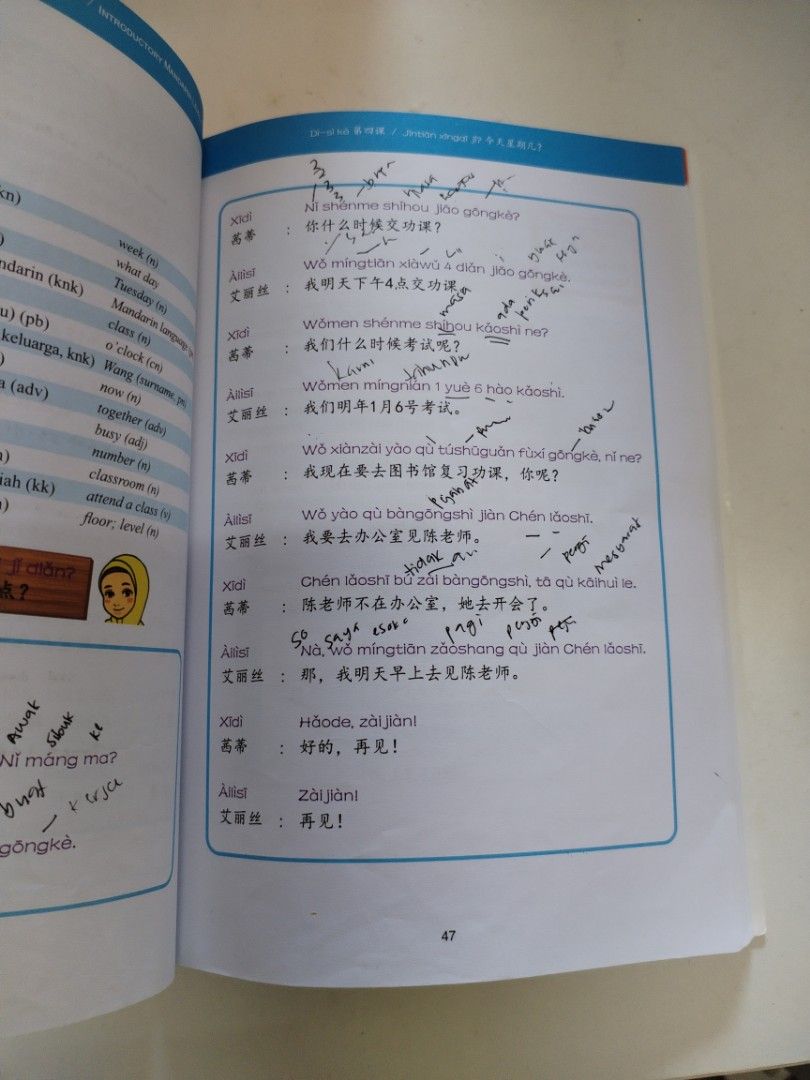 INTRODUCTORY MANDARIN
kn)
week (n)
what day
Tuesday (n)
ndarin (knk)
Mandarin language
class (n)
u) (pb)
o'clock (cn)
keluarga, knk)
Wang (surname, pn)
a (adv)
now (n)
together (adv)
busy (adj)
number (n)
classroom (n)
iah (kk)
attend a class (v)
floor; level (n)
jǐ diǎn?
点?
Awak sibuk ke
Nǐ máng ma?
buat kerja
gōngkè.
Dì-sì kè 第四课 / Jīntiān xīngqī jǐ? 今天星期几?
Xīdì Nǐ shénme shíhou jiāo gōngkè?
茜蒂 : 你什么时候交功课?
Àilìsī Wǒ míngtiān xiàwǔ 4 diǎn jiāo gōngkè.
艾丽丝 : 我明天下午4点交功课
masa ada
Xīdì Wǒmen shénme shíhou kǎoshì ne?
茜蒂 : 我们什么时候考试呢?
kami
Àilìsī Wǒmen míngnián 1 yuè 6 hào kǎoshì.
艾丽丝 : 我们明年1月6号考试。
Xīdì Wǒ xiànzài yào qù túshūguǎn fùxí gōngkè, nǐ ne?
茜蒂 : 我现在要去图书馆复习功课,你呢?
Àilìsī Wǒ yào qù bàngōngshì jiàn Chén lǎoshī.
艾丽丝 : 我要去办公室见陈老师。
tidak pergi mesyuarat
Xīdì Chén lǎoshī bú zài bàngōngshì, tā qù kāihuì le.
茜蒂 : 陈老师不在办公室,她去开会了。
so saya esok pagi
Àilìsī Nà, wǒ míngtiān zǎoshang qù jiàn Chén lǎoshī.
艾丽丝 : 那,我明天早上去见陈老师。
Xīdì Hǎode, zàijiàn!
茜蒂 : 好的,再见!
Àilìsī Zàijiàn!
艾丽丝 : 再见!
47